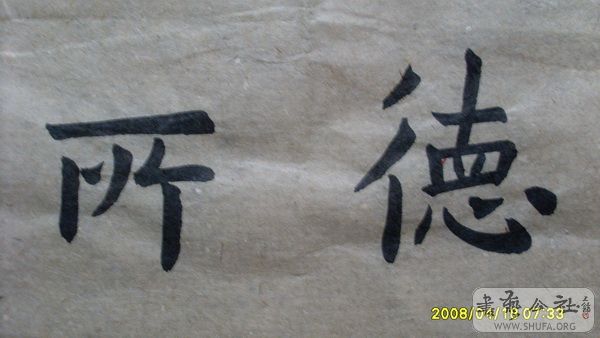 德所
2008/04/19 07:33
書藝公社
WWW.SHUFA.ORG